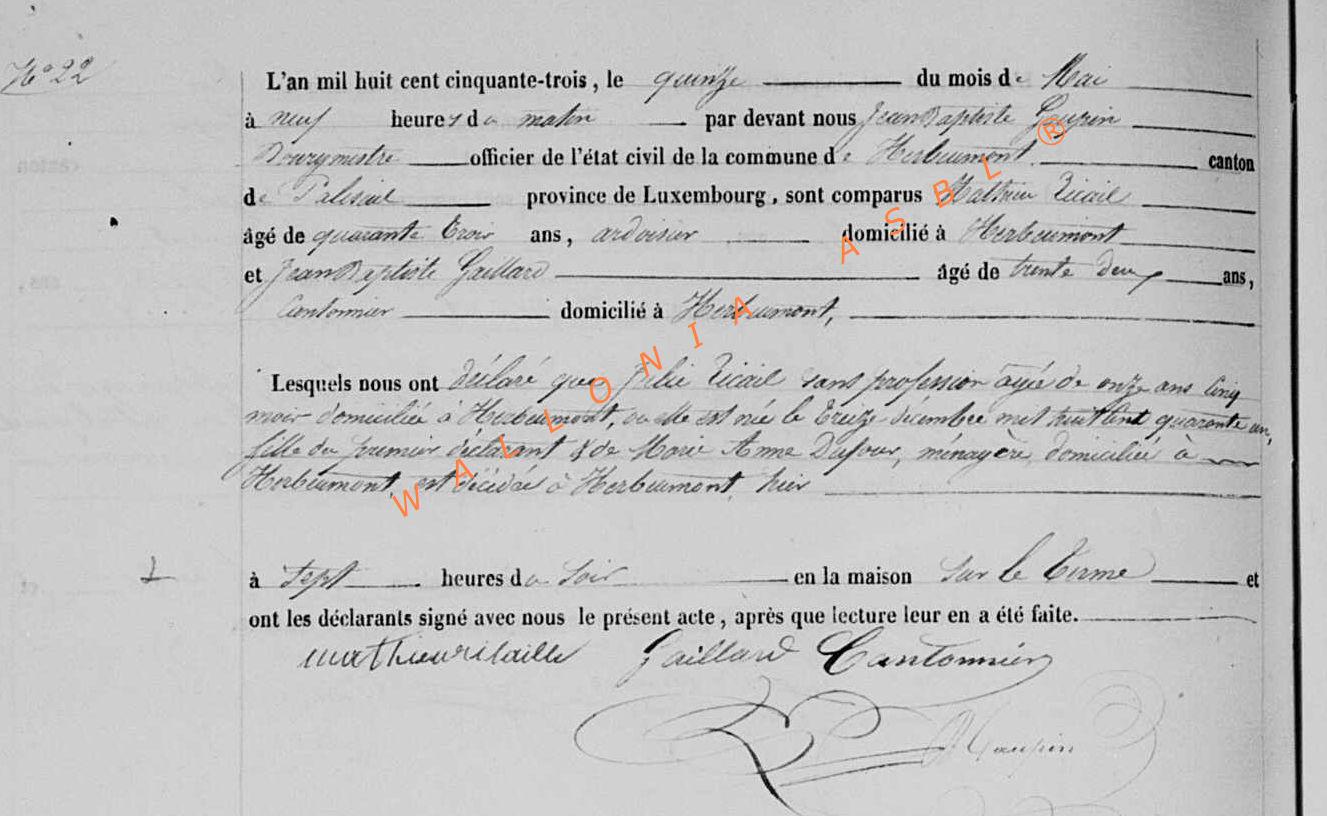 N° 22
L'an mil huit cent cinquante-trois, le quinze du mois de Mai
à neuf heures du matin par devant nous Jean Baptiste
Bourgmestre officier de l'état civil de la commune de Herbeumont canton
de Paliseul province de Luxembourg, sont comparus Mathieu Ricail
âgé de quarante trois ans, ardoisier domicilié à Herbeumont
et Jean Baptiste Gaillard âgé de trente deux ans,
Cantonnier domicilié à Herbeumont,
Lesquels nous ont déclaré que Julie Ricail sans profession âgée de onze ans cinq
mois domiciliée à Herbeumont, où elle est née le treize décembre mil huit cent quarante un,
fille du premier déclarant & de Marie Anne Dufour, ménagère, domiciliée à
Herbeumont, est décédée à Herbeumont, hier
à sept heures du soir en la maison sur le Terme et
ont les déclarants signé avec nous le présent acte, après que lecture leur en a été faite.
Gaillard Cantonnier
WALLONIA ASBL ®